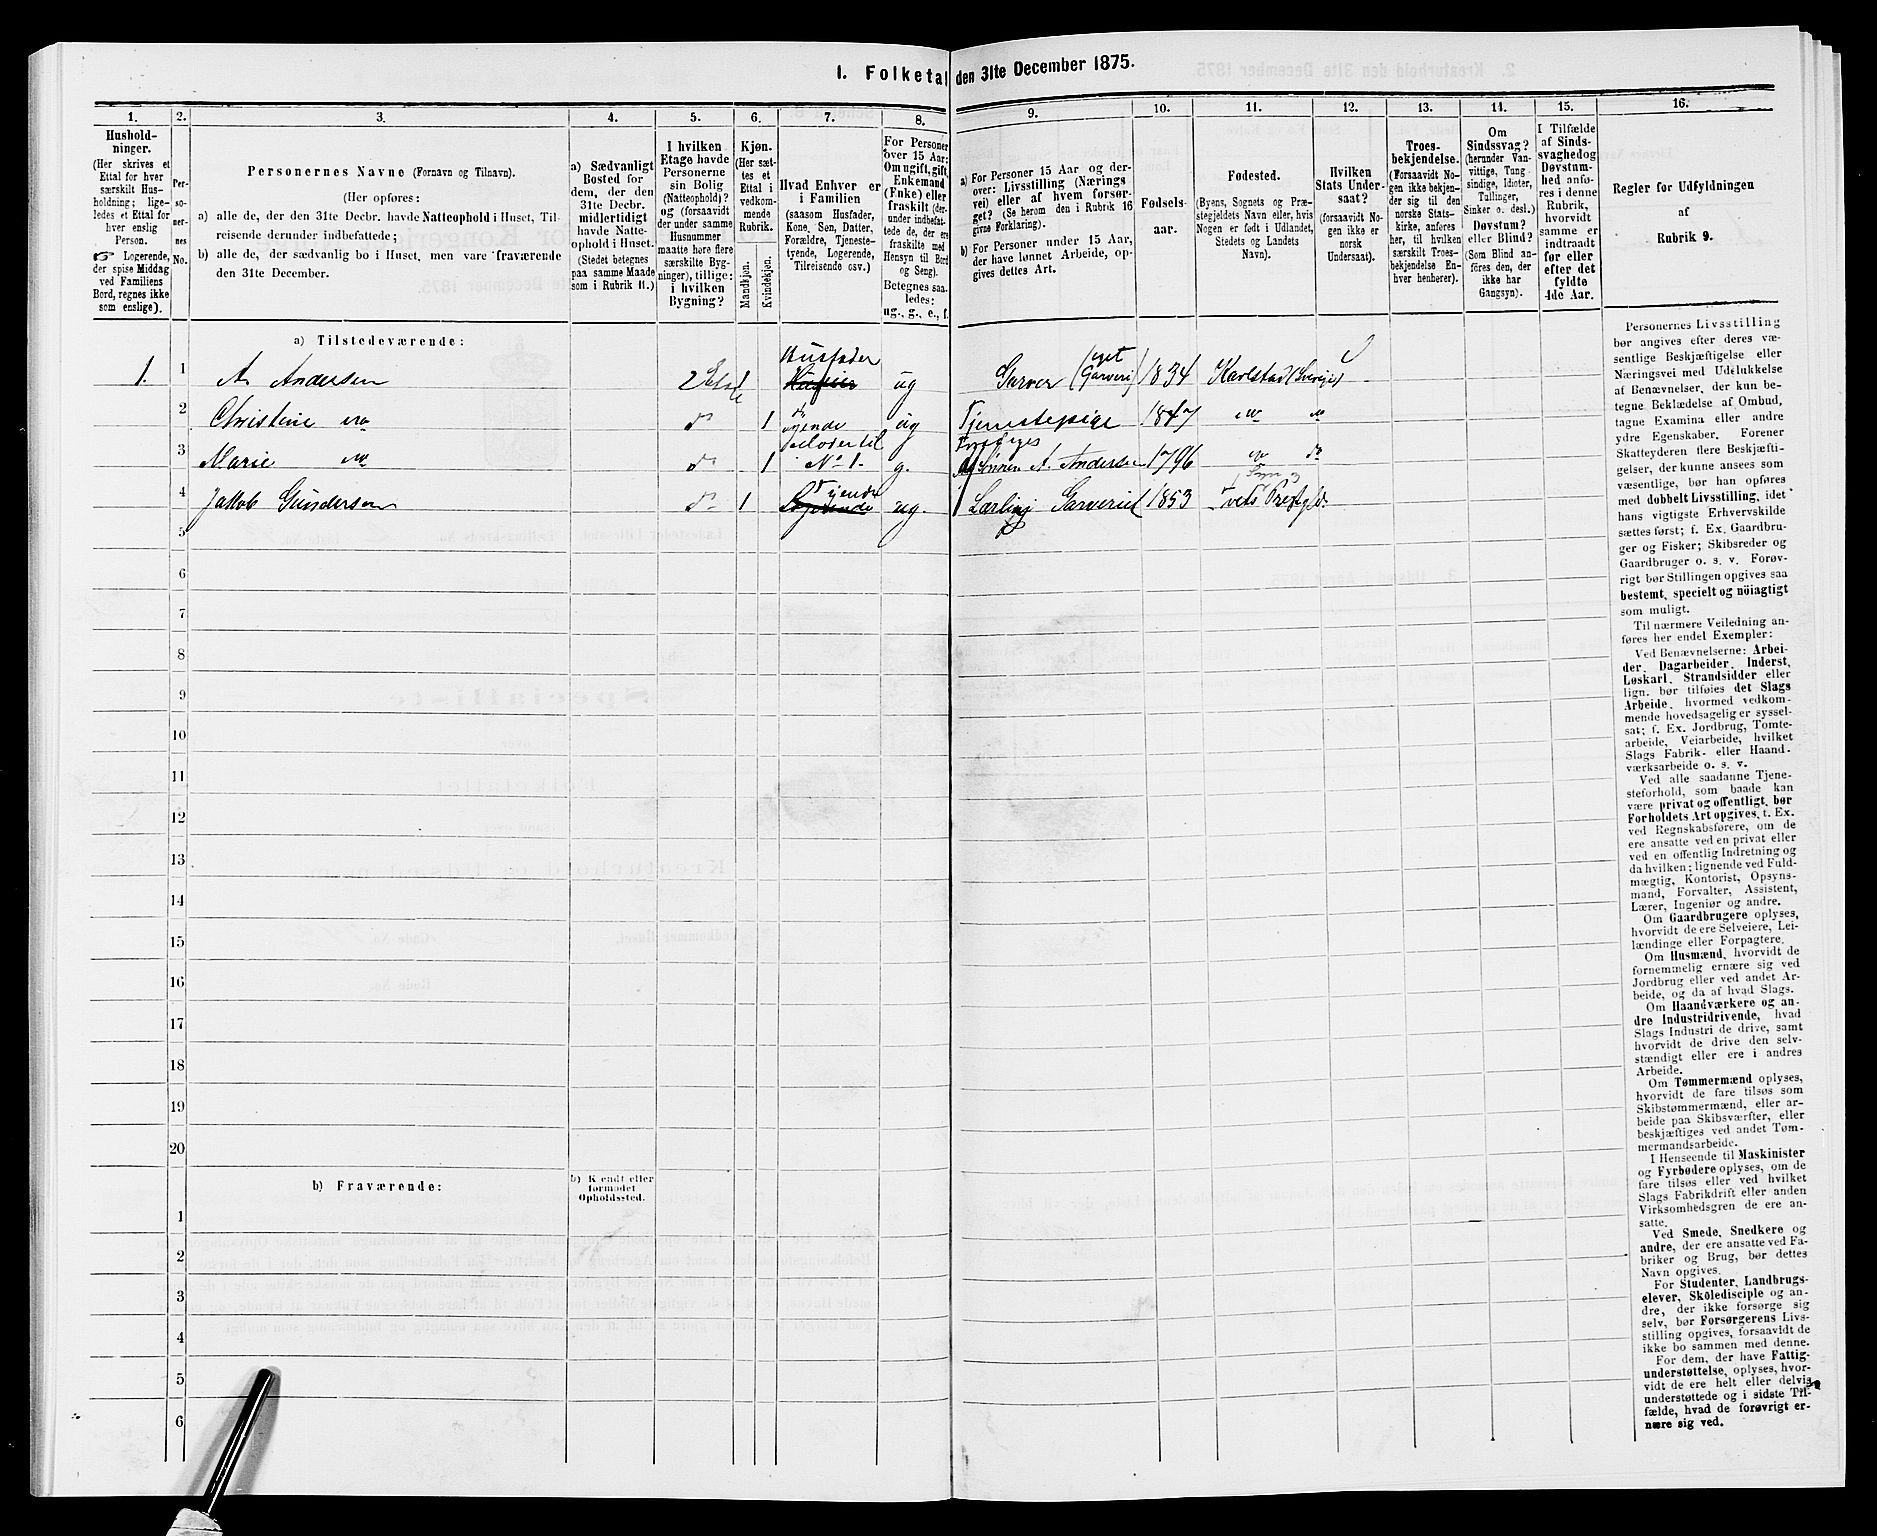 1. Folketal den 31te December 1875.
1. 2. 3. 4. 5. 6. 7. 8. 9. 10. 11. 12. 13. 14. 15. 16.
Hushold-
ninger.
(Her skrives et
Ettal for hver
særskilt Hus-
holdning; lige-
ledes et Ettal for
hver enslig
Person.
☞ Logerende,
der spise Middag
ved Familiens
Bord, regnes ikke
som enslige).
Per-
so-
ner-
nes
No.
Personernes Navne (Fornavn og Tilnavn).
(Her opføres:
a) alle de, der den 31te Decbr. havde Natteophold i Huset, Til-
reisende derunder indbefattede;
b) alle de, der sædvanlig bo i Huset, men vare fraværende
den 31te December.
a) Sædvanligt
Bosted for
dem, der den
31te Decbr.
midlertidigt
havde Natte-
ophold i Huset.
(Stedet betegnes
paa samme Maade
som i Rubrik 11.)
I hvilken
Etage havde
Personerne
sin Bolig
(Natteophold)?
og (forsaavidt
der under samme
Husnummer
maatte høre flere
særskilte Byg-
ninger), tillige:
i hvilken
Bygning?
Kjøn.
(Her sæt-
tes et
Ettal i
vedkom-
mende
Rubrik.
Mandkjøn.
Kvindekjøn.
Hvad Enhver er
i Familien
(saasom Husfader,
Kone, Søn, Datter,
Forældre, Tjeneste-
tyende, Logerende,
Tilreisende osv.)
For Personer
over 15 Aar:
Om ugift, gift,
Enkemand
(Enke) eller
fraskilt (der-
under indbefat-
tede de, der ere
fraskilte med
Hensyn til Bord
og Seng).
Betegnes saa-
ledes:
ug., g., e., f.
a) For Personer 15 Aar og der-
over: Livsstilling (Nærings-
vei) eller af hvem forsør-
get? (Se herom den i Rubrik 16
givne Forklaring).
b) For Personer under 15 Aar,
der have lønnet Arbeide, op-
gives dettes Art.
Fødsels-
aar.
Fødested.
(Byens, Sognets og Præ-
stegjeldets Navn eller, hvis
Nogen er født i Udlandet,
Stedets og Landets
Navn).
Hvilken
Stats Under-
saat?
(forsaavidt No-
gen ikke er
norsk
Undersaat).
Troes-
bekjendelse.
(Forsaavidt No-
gen ikke bekjen-
der sig til den
norske Stats-
kirke, anføres
her, til hvilken
særskilt Troes-
bekjendelse En-
hver henhører).
Om
Sindssvag?
(herunder Van-
vittige, Tung-
sindige, Idioter,
Tullinger,
Sinker o. desl.)
Døvstum?
eller Blind?
(Som Blind an-
føres den, der
ikke har
Gangsyn).
I Tilfælde
af Sinds-
svaghed og
Døvstum-
hed anfø-
res i denne
Rubrik,
hvorvidt
samme er
indtraadt
før eller
efter det
fyldte
4de Aar.
Regler for Udfyldningen
af
Rubrik 9.
a) Tilstedeværende:
1. 1 A. Andersen 2 Etage 1 Husfader ug Garver (eget Garveri) 1834 Karlstad (Sverige)
2 Christine do do 1 tyende ug Tjenestepige 1847 do do
3 Marie do do 1 Moder til No 1. g. Forsørges Af Sønnen A. Andersen 1796 do do
4 Jakob Gundersen do 1 Tyende ug. Lærling Garveriet 1853 Tvets Prestgld.
5
6
7
8
9
10
11
12
13
14
15
16
17
18
19
20
b) Fraværende:
b) Kjendt eller
formodet
Opholdssted.
1
2
3
4
5
6
Personernes Livsstilling
bør angives efter deres væ-
sentlige Beskjæftigelse eller
Næringsvei med Udelukkelse
af Benævnelser, der kun be-
tegne Beklædelse af Ombud,
tagne Examina eller andre
ydre Egenskaber. Forener
Skatteyderen flere Beskjæfti-
gelser, der kunne ansees som
væsentlige, bør han opføres
med dobbelt Livsstilling, idet
hans vigtigste Erhvervskilde
sættes først; f. Ex. Gaardbru-
ger og Fisker; Skibsreder og
Gaardbruger o. s. v. Forøv-
rigt bør Stillingen opgives saa
bestemt, specielt og nöiagtigt
som muligt.
Til nærmere Veiledning an-
føres her endel Exempler:
Ved Benævnelserne: Arbei-
der, Dagarbeider, Inderst,
Løskarl, Strandsidder eller
lign. bør tilføies det Slags
Arbeide, hvormed vedkom-
mende hovedsagelig er syssel-
sat; f. Ex. Jordbrug, Tomte-
arbeide, Veiarbeide, hvilket
Slags Fabrik- eller Haand-
værksarbeide o. s. v.
Ved alle saadanne Tjene-
steforhold, som baade kan
være privat og offentligt, bør
Forholdets Art opgives, t. Ex.
ved Regnskabsførere, om de
ere ansatte ved en privat eller
ved en offentlig Indretning og
da hvilken; lignende ved Fuld-
mægtig, Kontorist, Opsyns-
mand, Forvalter, Assistent,
Lærer, Ingeniør og andre.
Om Gaardbrugere oplyses,
hvorvidt de ere Selveiere, Lei-
lændinge eller Forpagtere.
Om Husmænd, hvorvidt de
fornemmelig ernære sig ved
Jordbrug eller ved andet Ar-
beide, og da af hvad Slags.
Om Haandværkere og an-
dre Industridrivende, hvad
Slags Industri de drive, samt
hvorvidt de drive den selv-
stændigt eller ere i andres
Arbeide.
Om Tømmermænd oplyses,
hvorvidt de fare tilsøs som
Skibstømmermænd, eller ar-
beide paa Skibsværfter, eller
beskjæftiges ved andet Tøm-
mermandsarbeide.
I Henseende til Maskinister
og Fyrbødere oplyses, om de
fare tilsøs eller ved hvilket
Slags Fabrikdrift eller anden
Virksomhedsgren de ere an-
satte.
Ved Smede, Snedkere og
andre, der ere ansatte ved Fa-
briker og Brug, bør dettes
Navn opgives.
For Studenter, Landbrugs-
elever, Skoledisciple og an-
dre, der ikke forsørge sig
selv, bør Forsørgerens Livs-
stilling opgives, forsaavidt de
ikke bo sammen med denne.
For dem, der have Fattig-
understøttelse, oplyses, hvor-
vidt de ere helt eller delvis
understøttede og i sidste Til-
fælde, hvad de forøvrigt er-
nære sig ved.